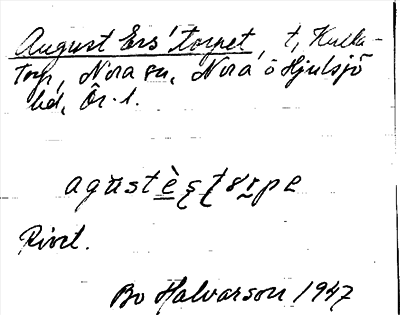 August Ers' torpet, t, Kulla-
torp, Nora sn, Nora o Hjulsjö
bd, Ör. l.
agustèʂʈərpe
Rivet.
Bo Halvarson 1947